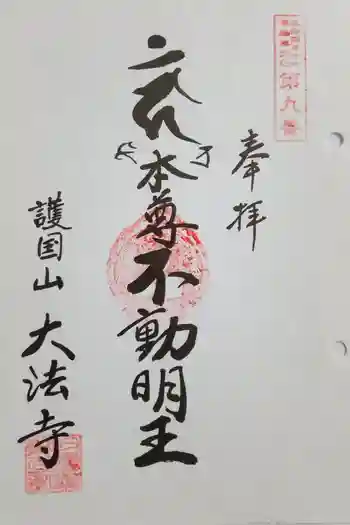 第九番
奉拝
本尊不動明王
護国山
大法寺